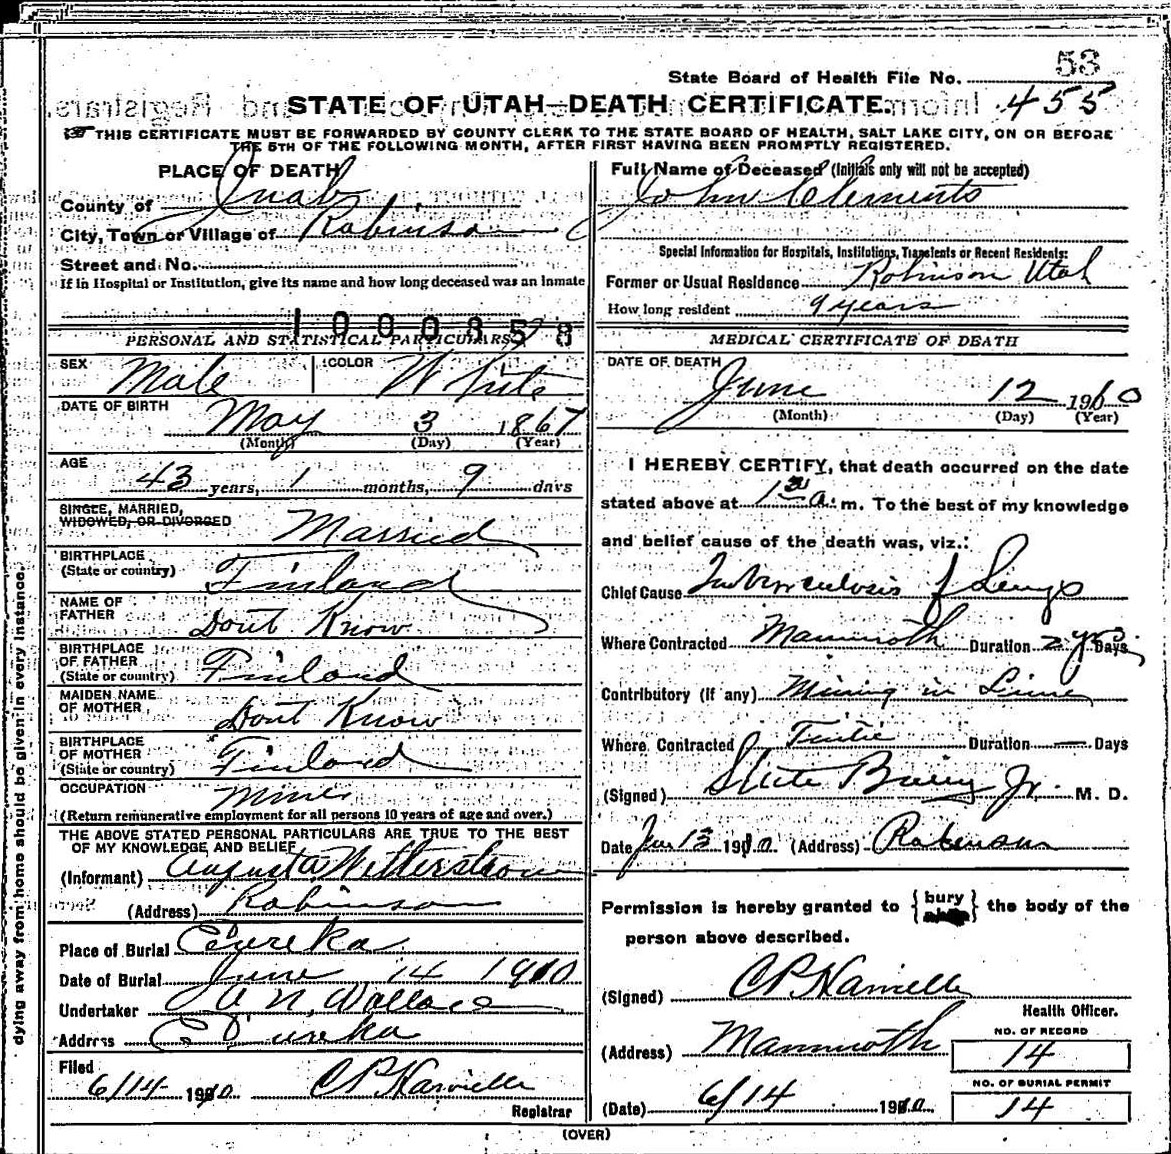 53
State Board of Health File No. 455
STATE OF UTAH—DEATH CERTIFICATE.
THIS CERTIFICATE MUST BE FORWARDED BY COUNTY CLERK TO THE STATE BOARD OF HEALTH, SALT LAKE CITY, ON OR BEFORE
THE 5TH OF THE FOLLOWING MONTH, AFTER FIRST HAVING BEEN PROMPTLY REGISTERED.
PLACE OF DEATH
County of Juab
City, Town or Village of Robinson
Street and No.
If in Hospital or Institution, give its name and how long deceased was an inmate
1000858
PERSONAL AND STATISTICAL PARTICULARS
SEX Male COLOR White
DATE OF BIRTH May 3 1867
(Month) (Day) (Year)
AGE 43 years, 1 months, 9 days
SINGLE, MARRIED,
WIDOWED, OR DIVORCED Married
BIRTHPLACE
(State or country) Finland
NAME OF
FATHER Dont Know
BIRTHPLACE
OF FATHER
(State or country) Finland
MAIDEN NAME
OF MOTHER Dont Know
BIRTHPLACE
OF MOTHER
(State or country) Finland
OCCUPATION Miner
(Return remunerative employment for all persons 10 years of age and over.)
THE ABOVE STATED PERSONAL PARTICULARS ARE TRUE TO THE BEST
OF MY KNOWLEDGE AND BELIEF
(Informant) Augusta
(Address) Robinson
Place of Burial Eureka
Date of Burial June 14 1910
Undertaker A N. Wallace
Address Eureka
Filed
6/14 1910
Registrar
Full Name of Deceased (Initials only will not be accepted)
John Clements
Special Information for Hospitals, Institutions, Transients or Recent Residents:
Former or Usual Residence Robinson Utah
How long resident 9 years
MEDICAL CERTIFICATE OF DEATH
DATE OF DEATH
June 12 1910
(Month) (Day) (Year)
I HEREBY CERTIFY, that death occurred on the date
stated above at 1 a. m. To the best of my knowledge
and belief cause of the death was, viz.:
Chief Cause Tuberculosis of Lungs
Where Contracted Mammoth Duration 2 yrs. Days
Contributory (if any) Mining in Lime
Where Contracted Tintic Duration — Days
(Signed) Steele Bailey Jr. M. D.
Date Jun 13 1910 (Address) Robinson
Permission is hereby granted to {bury} the body of the
person above described.
(Signed)
Health Officer.
(Address) Mammoth
NO. OF RECORD
14
NO. OF BURIAL PERMIT
14
(Date) 6/14 1910
(OVER)
dying away from home should be given in every instance.